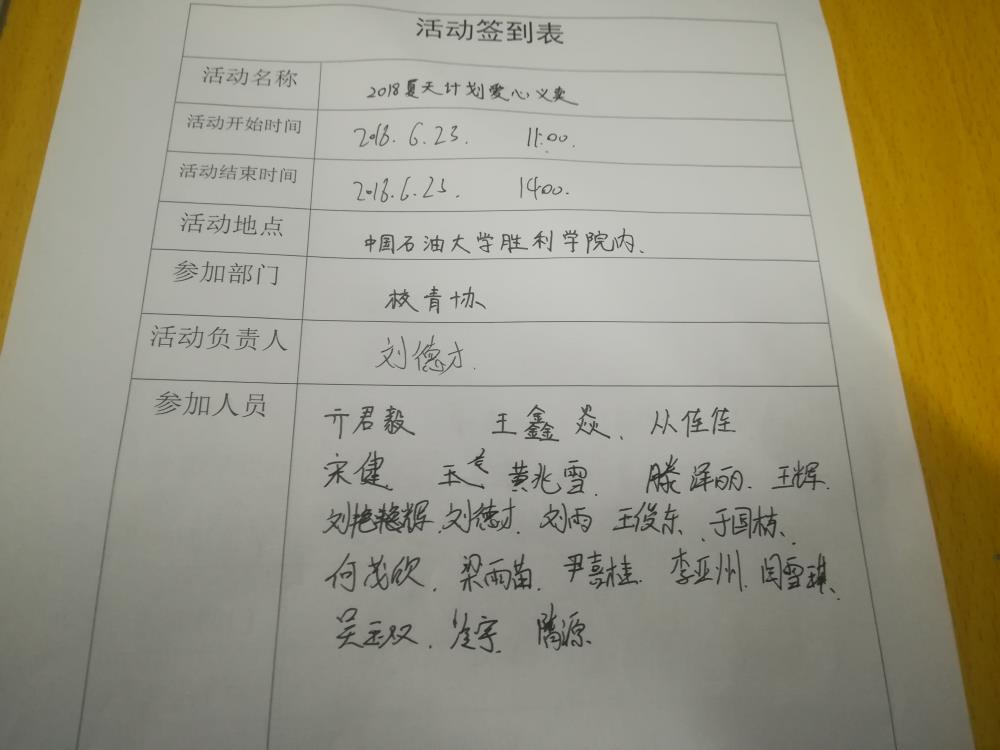 活动签到表
活动名称 2018夏天计划爱心义卖
活动开始时间 2018.6.23. 11:00.
活动结束时间 2018.6.23. 14:00.
活动地点 中国石油大学胜利学院内、
参加部门 校青协
活动负责人 刘德才.
参加人员 亓君毅 王鑫焱、从佳佳
宋健 黄兆雪. 滕泽丽. 王辉.
刘艳辉 刘德才. 刘雨 王俊东、于国栋、
何茂欣. 梁雨苗. 尹熹桂. 李亚州. 闫雪琪、
吴玉双. 滕源